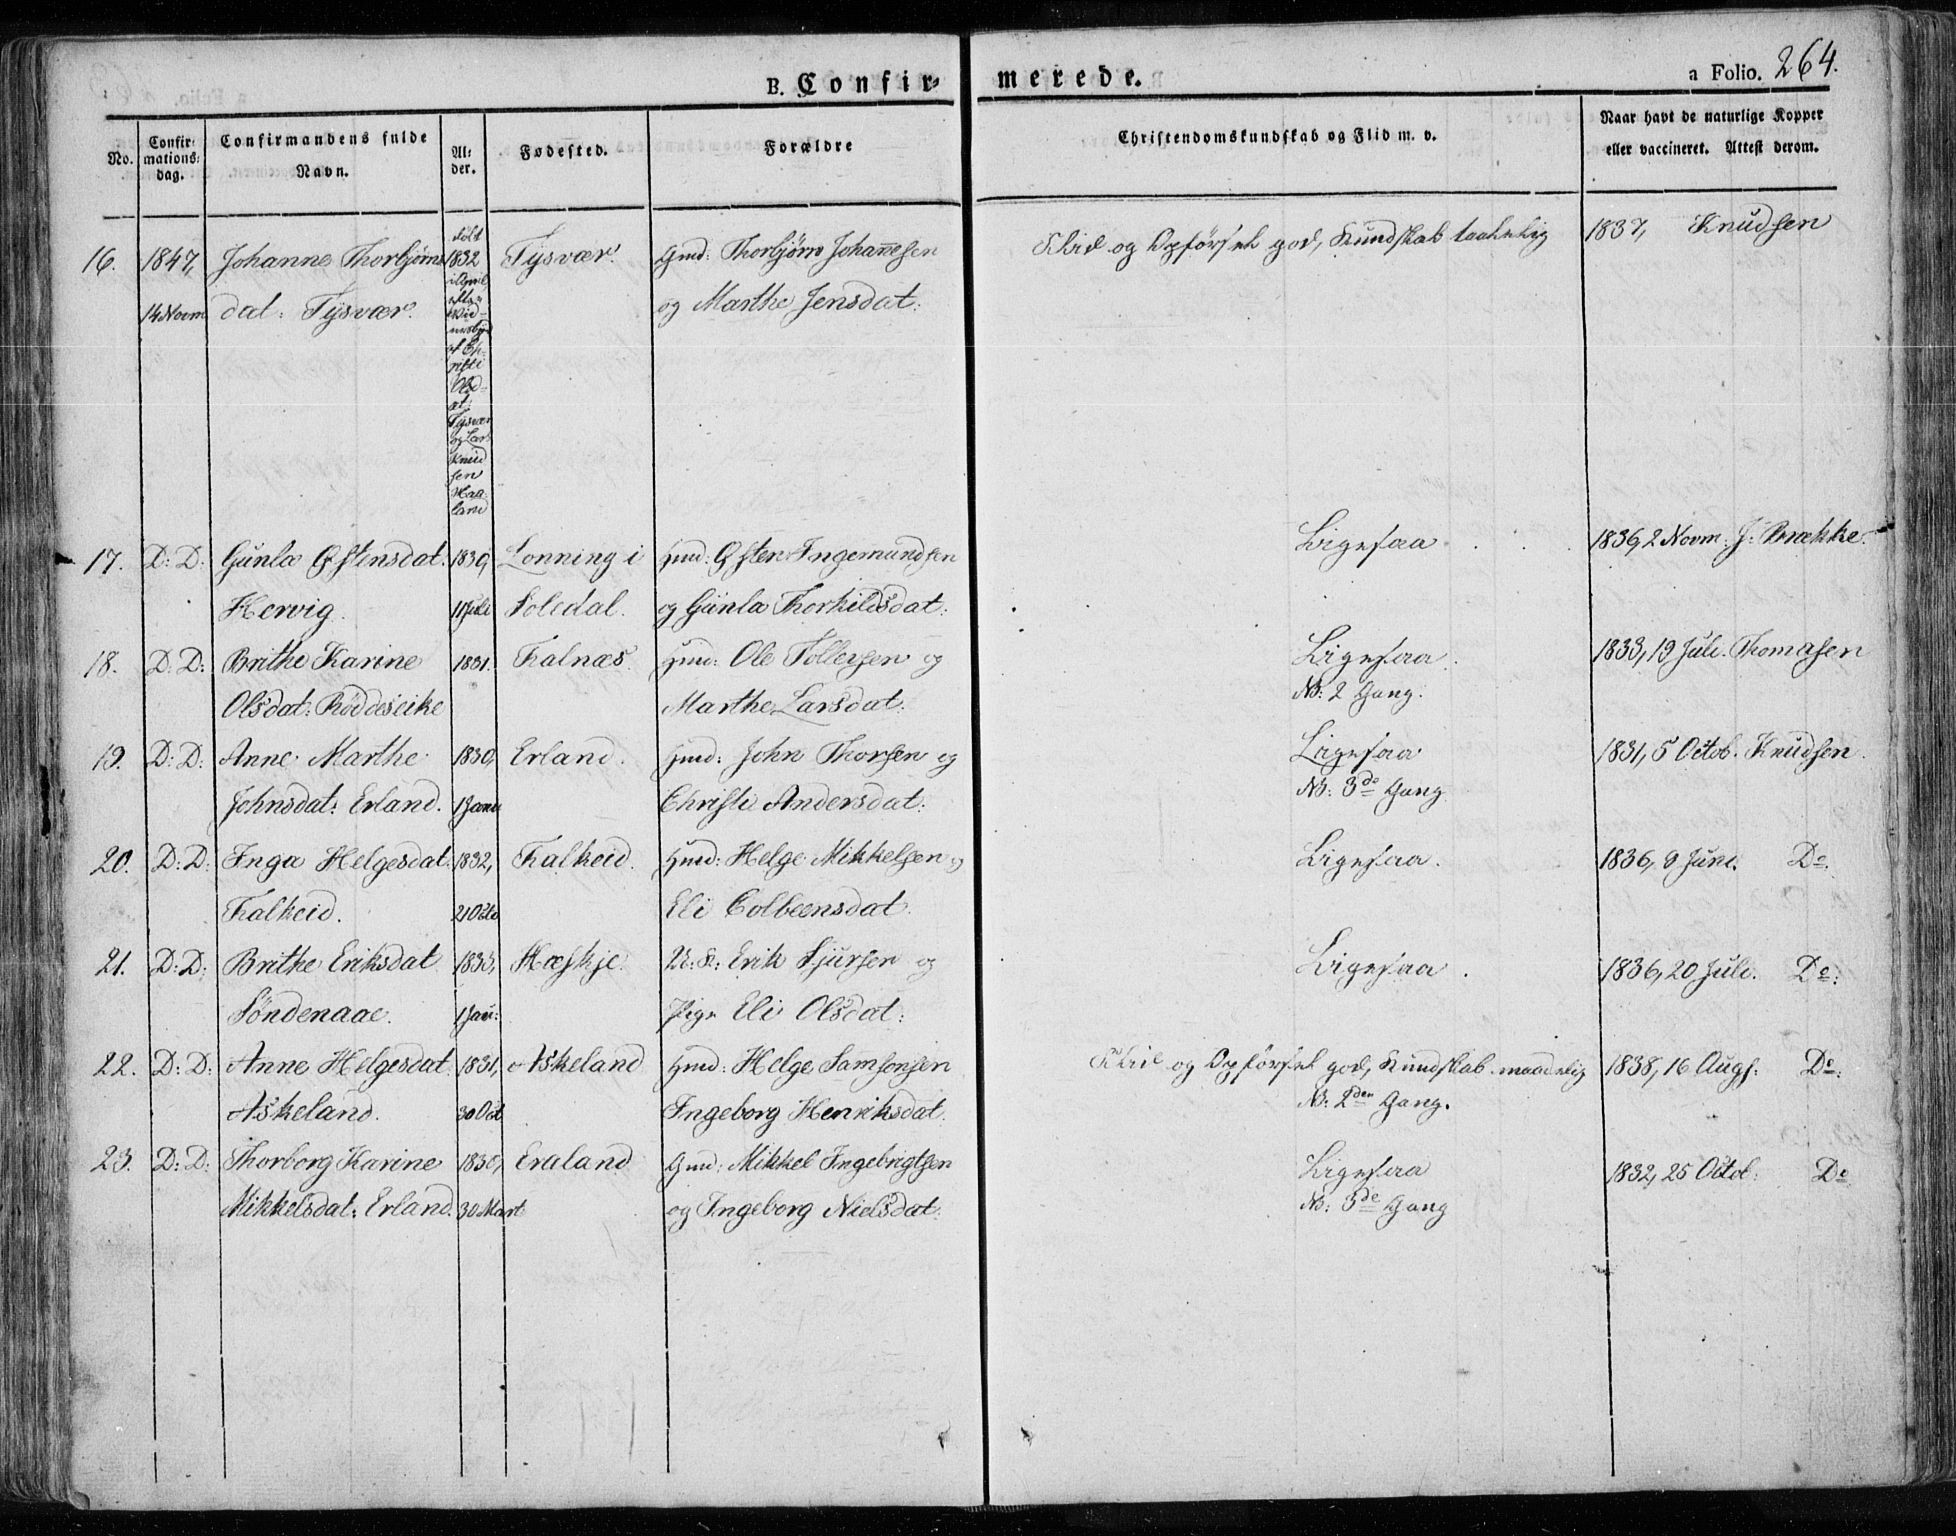 B. Confir-
merede.
a Folio. 264.
No.
Confir-
mations-
dag.
Confirmandens fulde
Navn.
Al-
der.
Fødested.
Forældre
Christendomskundskab og Flid m. v.
Naar havt de naturlige Kopper
eller vaccineret. Attest derom.
16. 1847, Johanne Thorbjørns 1832 Tysvær. Gmd: Thorbjørn Johannesen Flid og Opførsel god, Kundskab taalelig 1837, Knudsen
14 Novm dat: Tysvær. og Marthe Jensdat:
Olsd-
at:
Tysvær
og Lars
Knud
sen
Haa
land
17. D: D: Gunla Østensdat. 1830, Lonning i Hmd: Østen Ingemundsen Ligesaa. 1836, 2 Novm: J: Brække.
Hervig. 11 Juli Soledal. og Gunla Thorkildsdat:
18. D: D: Brithe Karine 1831. Falnæs. Hmd: Ole Tollevsen og Ligesaa. 1833, 19 Juli. Thomasen
Olsdat: Røddeseike Marthe Larsdat: NB: 2 Gang.
19. D: D: Anne Marthe 1830, Erland. Hmd: John Thorsen og Ligesaa 1831, 5 Octob. Knudsen.
Johnsdat: Erland. 1 Janu Christi Andersdat: NB: 3de Gang
20. D: D: Inga Helgesdat. 1832, Falkeid. Hmd: Helge Mikkelsen og Ligesaa. 1836, 9 Juni. Do.
Falkeid. 21 Octo Eli Colbeensdat.
21. D: D: Brithe Eriksdat 1833, Hæskje. U: K: Erik Sjursen og Ligesaa. 1836, 20 Juli. Do:
Søndenaae. 1 Jan: Pige Eli Olsdat:
22. D: D: Anne Helgesdat. 1831, Askeland Hmd: Helge Samsonsen Flid og Opførsel god, Kundskab maadelig 1838, 16 Augs: Do:
Askeland. 30 Oct Ingeborg Henriksdat. NB: 2den Gang.
23. D: D: Thorborg Karine 1830, Eraland Gmd: Mikkel Ingebrigtsen Ligesaa 1832, 25 Octob: Do
Mikkelsdat: Erland. 30 Mart og Ingeborg Nielsdat: NB: 3de Gang